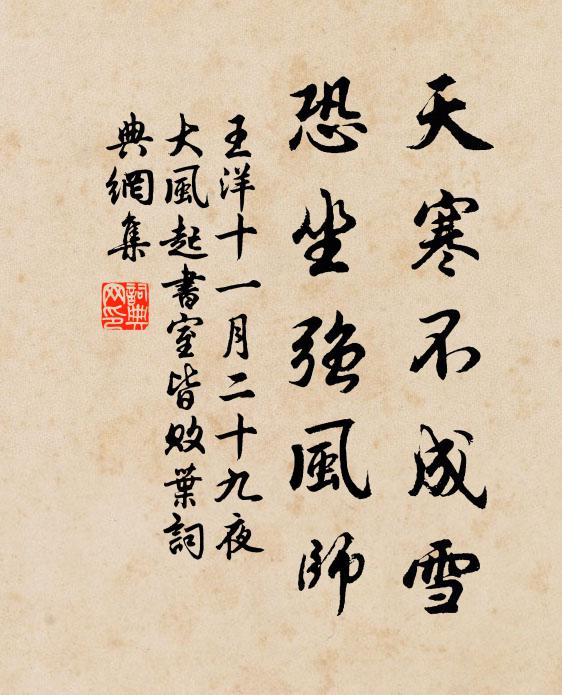 天寒不成雪
恐坐強風師
王洋十一月二十九夜
大風起書室皆敗葉詞
典網集
詞典网印